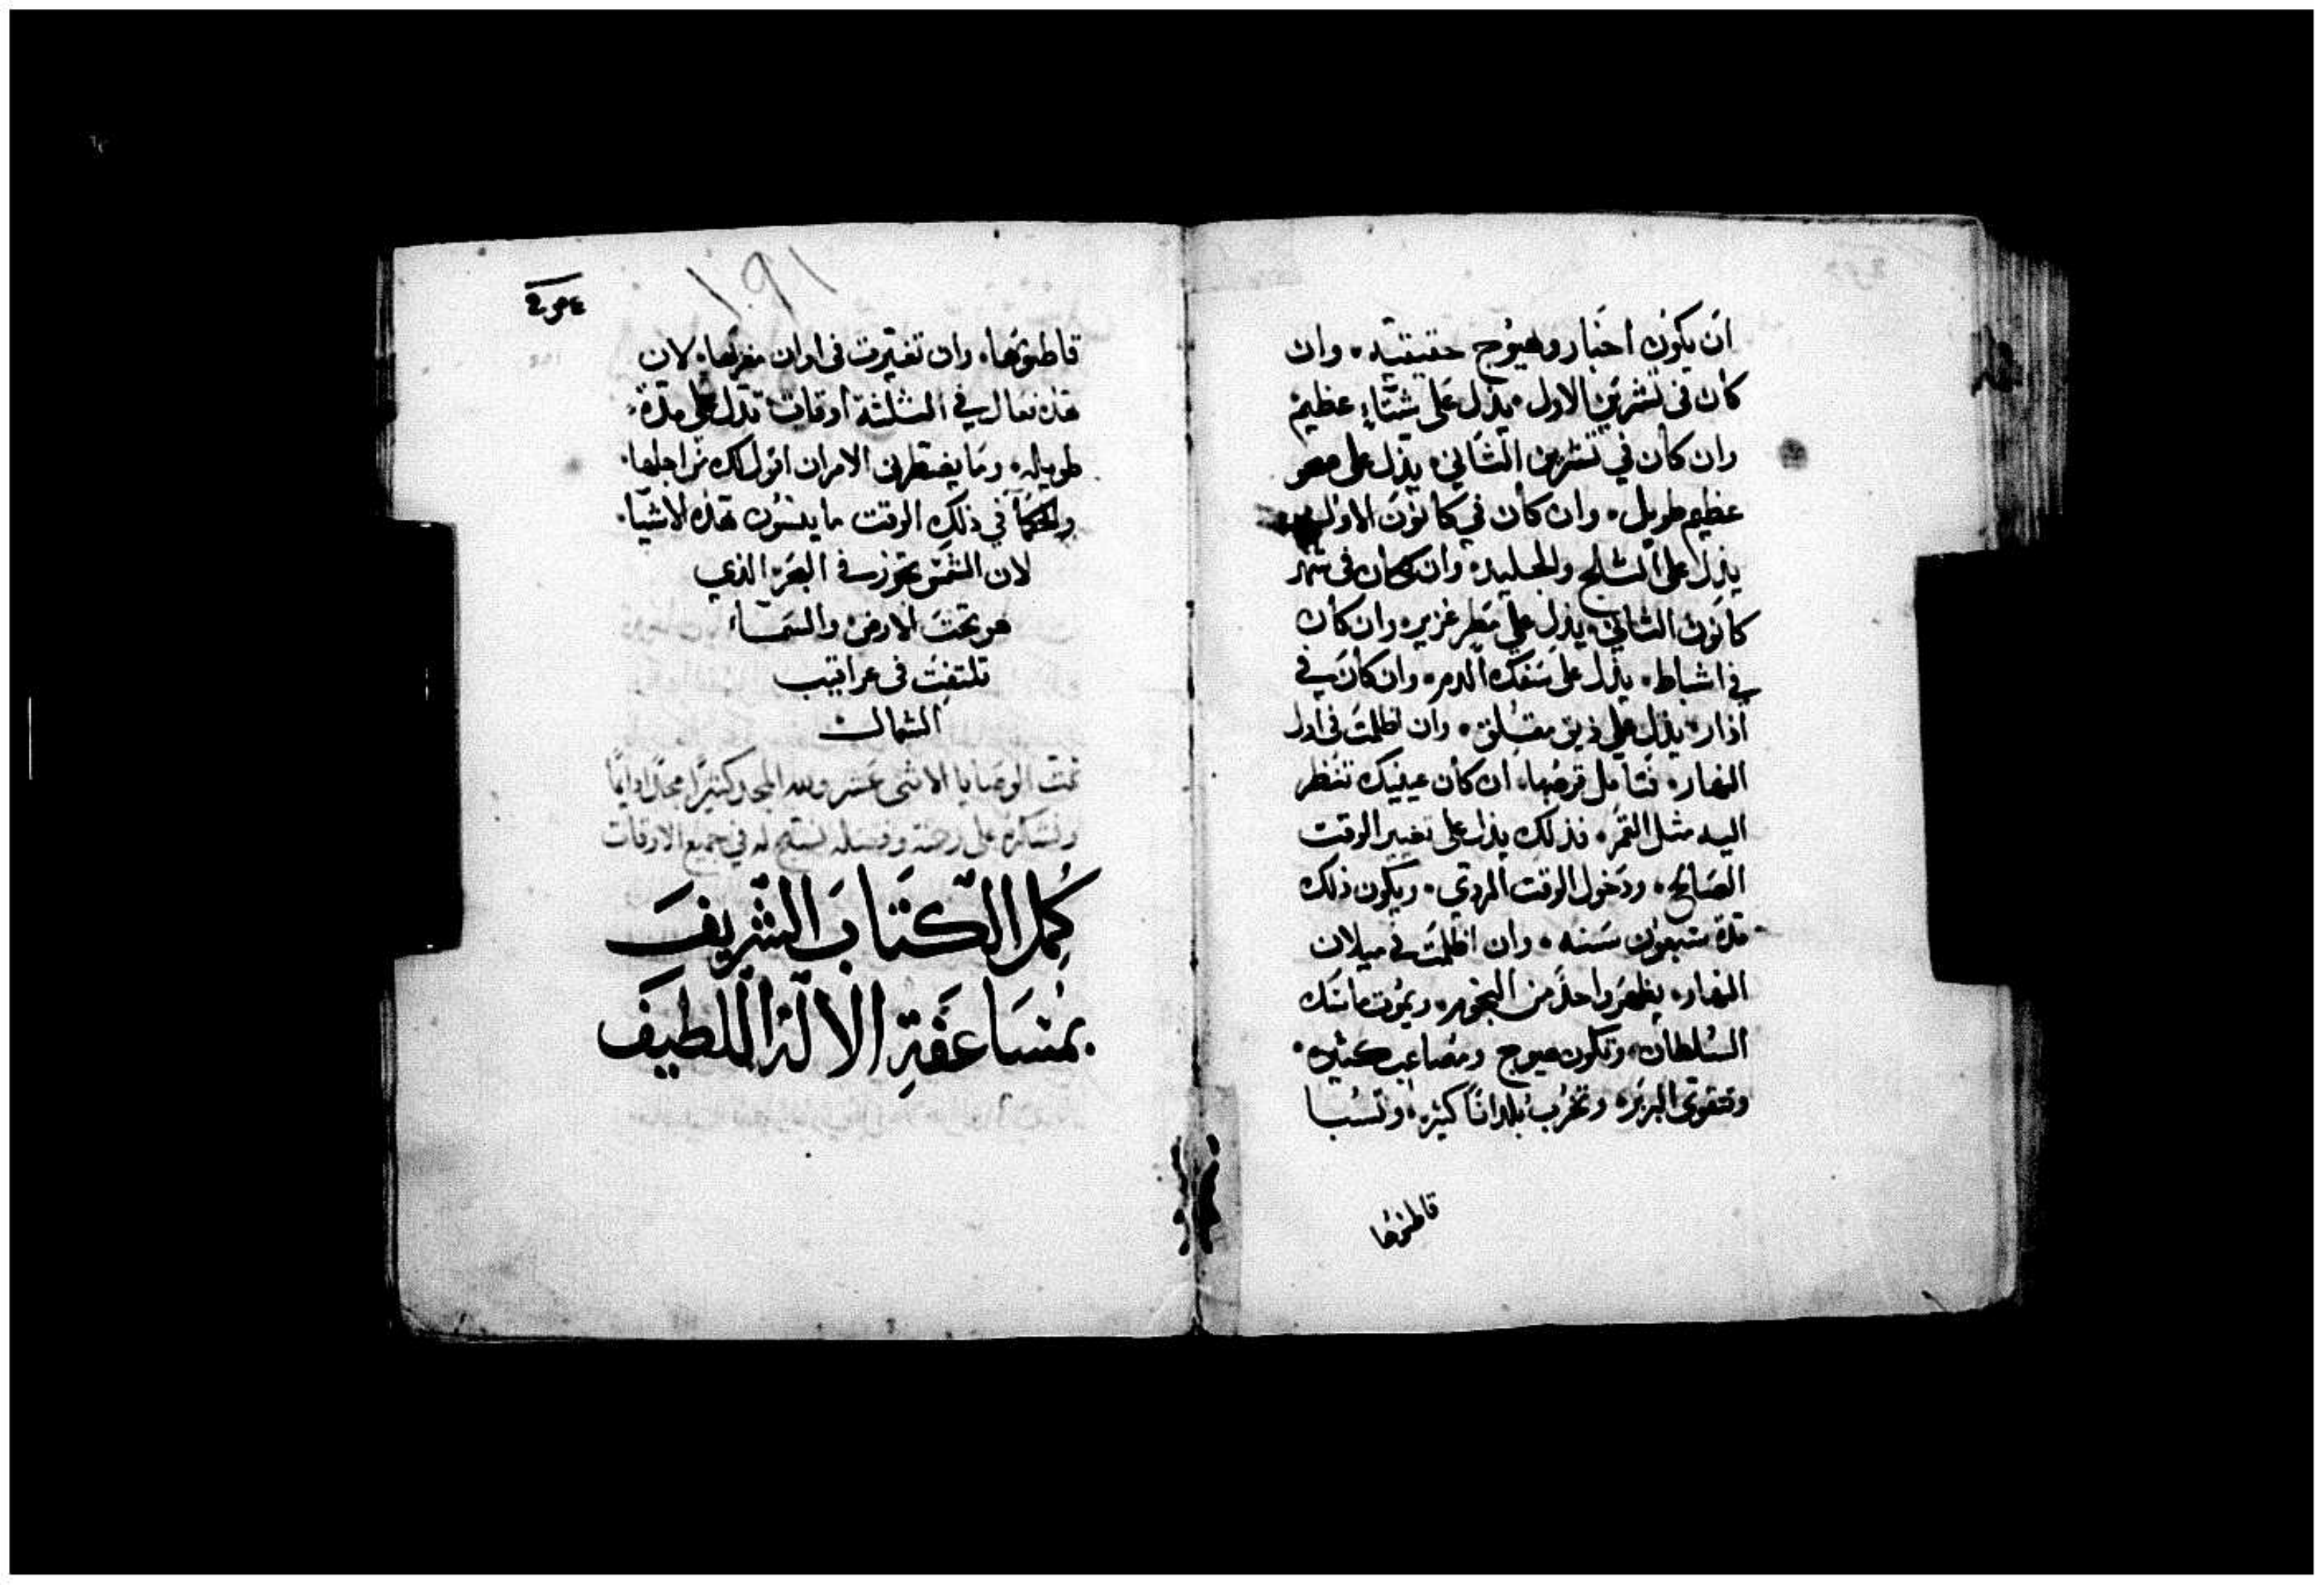 ان يكون اخبار وهيوج حقيقيه. وان
كان في تشرين الاول. يدل على شتاء عظيم
وان كان في تشرين الثاني. يدل على صحو
عظيم طويل. وان كان في كانون الاول
يدل على الثلج والجليد. وان كان في شهر
كانون الثاني. يدل على مطر غزير. وان كان
في اشباط. يدل على سفك الدم. وان كان في
آذار. يدل على مقلق. وان اظلمت في اول
النهار. فتأمل قرصها. ان كان عينيك تنظر
اليه مثل القمر. فذلك يدل على تغيير الوقت
الصالح. ودخول الوقت الردي. ويكون ذلك
مدة سبعون سنه. وان اظلمت في ميلان
النهار. يظهر واحدًا من النجوم. ويموت ماسك
السلطان. وتكون هيوج ومصاعب كثيره.
وتتقوى البربر. وتخرب بلدانًا كثيره. وتسبا
قاطنوها
قاطنوها. وان تغيرت في اوان مغربها. لان
هذه في الثلثة اوقات تدل على مدة
طويله. وما يضطرني الامر ان اقول لك من اجلها.
والحكما في ذلك الوقت ما ينسون هذه الاشيا.
لان الشمس تجوز في البحر الذي
هو تحت الارض والسماء
تلتفت في عراقيب
الشمال
تمت الوصايا الاثني عشر ولله المجد كثيرًا دايمًا
ونشكره على وفضله له في جميع الاوقات
كُمِل الكتاب الشريف
بمساعفة الاله اللطيف